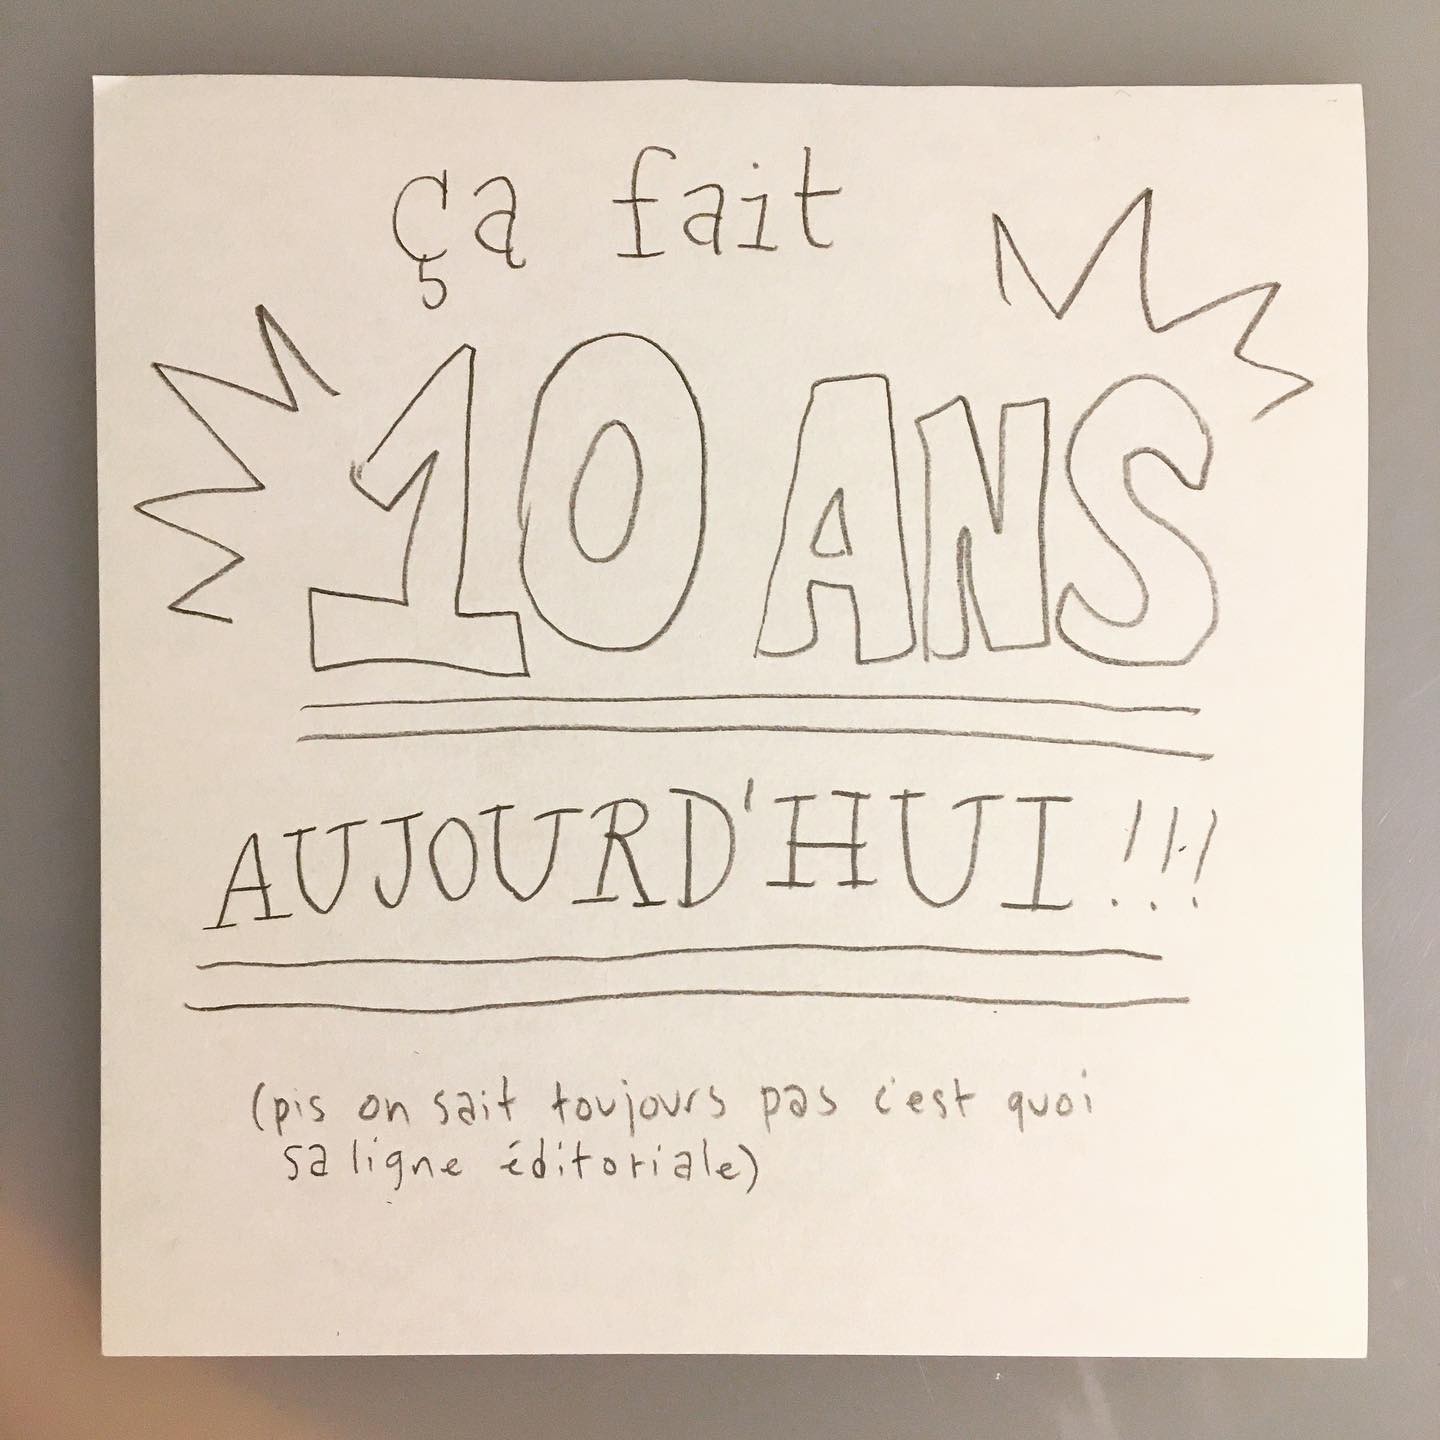 ça fait
10 ANS
AUJOURD'HUI!!!
(pis on sait toujours pas c'est quoi
sa ligne éditoriale)